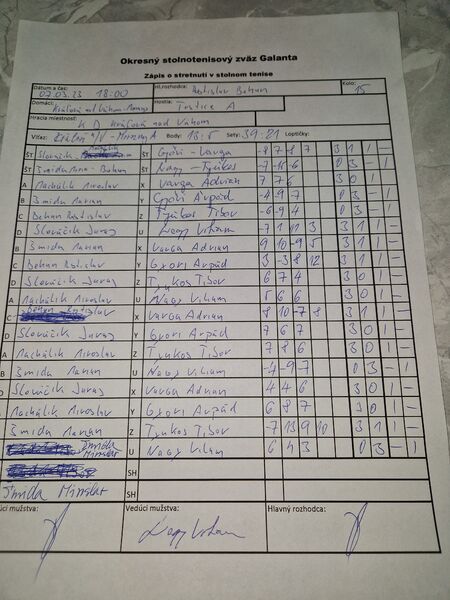 Okresný stolnotenisový zväz Galanta
Zápis o stretnutí v stolnom tenise
Dátum a čas: 07.03.23 18:00 Hl.rozhodca: Rastislav Bohun Kolo: 15
Domáci: Hostia: Trstice A
Hracia miestnosť: K D Kráľová nad Váhom
Víťaz: Body: 13:5 Sety: 39:21 Loptičky:
ŠT Slovačik ŠT Györi - Varga -8 7 8 7 3 1 1 -
ŠT Šmida - Bohun ŠT Nagy - Tyukos 0 3 - 1
A Machálik Miroslav X Varga Adrian 7 7 6 3 0 1 -
B Šmida Marian Y Györi Árpád -4 -9 -7 0 3 - 1
C Bohun Rastislav Z Tyukos Tibor -6 -9 -4 0 3 - 1
D Slováčik Juraj U Nagy Viliam -7 11 11 3 3 1 1 -
B Šmida Marian X Varga Adrian 9 10 -9 5 3 1 1 -
C Bohun Rastislav Y Györi Arpád 3 -3 8 12 3 1 1 -
D Slováčik Juraj Z Tyukos Tibor 6 7 4 3 0 1 -
A Machálik Miroslav U Nagy Viliam 5 6 6 3 0 1 -
C X Varga Adrian 8 10 -7 8 3 1 1 -
D Slováčik Juraj Y Györi Arpád 7 6 7 3 0 1 -
A Machálik Miroslav Z Tyukos Tibor 7 8 6 3 0 1 -
B Šmida Marian U Nagy Viliam 0 3 - 1
D Slováčik Juraj X Varga Adrian 4 4 6 3 0 1 -
A Machálik Miroslav Y Györi Arpád 6 8 7 3 0 1 -
B Šmida Marian Z Tyukos Tibor -7 13 9 10 3 1 1 -
U Nagy Viliam 6 4 3 0 3 - 1
SH
Šmida SH
Vedúci mužstva: Hlavný rozhodca: